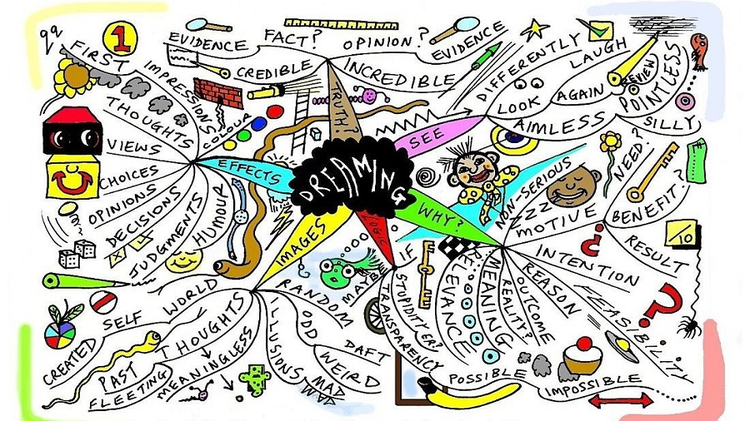 DREAMING
TRUTH?
CREDIBLE
EVIDENCE
FACT?
INCREDIBLE
OPINION?
EVIDENCE
SEE
DIFFERENTLY
LOOK AGAIN
LAUGH
REVIEW
POINTLESS
AIMLESS
SILLY
WHY?
NON-SERIOUS
MOTIVE
NEED?
BENEFIT?
RESULT
10
INTENTION
REASON
FEASIBILITY
OUTCOME
REALITY?
MEANING
RELEVANCE
POSSIBLE
IMPOSSIBLE
LOGIC
IF
MAYBE
TRANSPARENCY
IMAGES
RANDOM
ODD
DAFT
WEIRD
MAD
ILLUSIONS
THOUGHTS
MEANINGLESS
PAST
FLEETING
WORLD
SELF
CREATED
EFFECTS
COLOUR
FIRST IMPRESSIONS
1
THOUGHTS
VIEWS
CHOICES
OPINIONS
DECISIONS
JUDGMENTS
HUMOUR